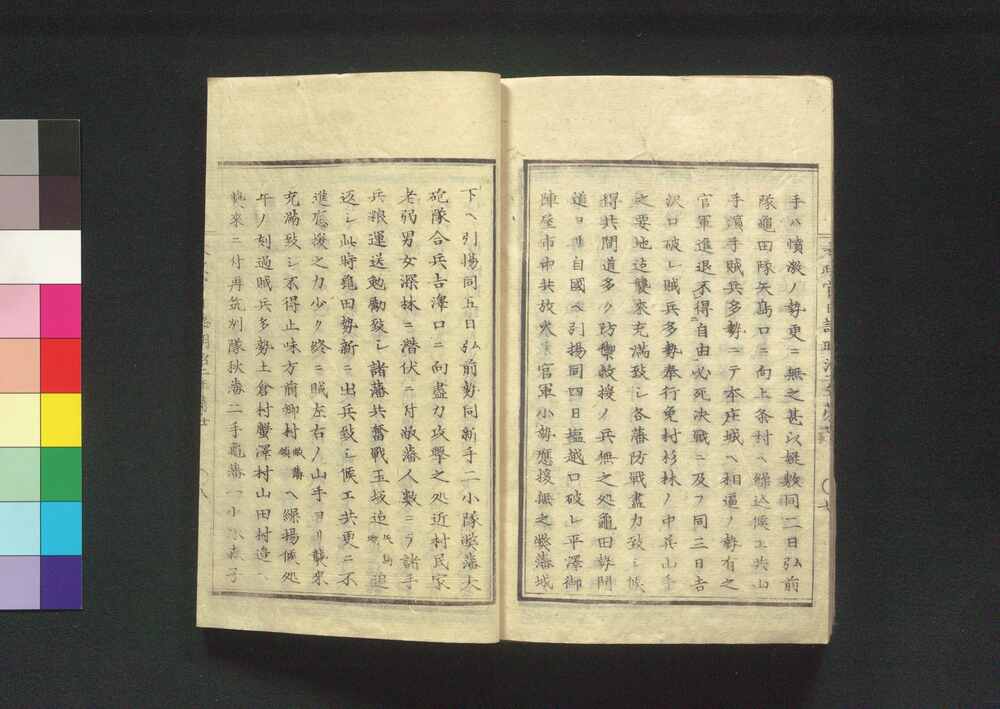 手ハ憤激ノ勢更ニ無之甚以嘆敷同二日弘前
隊龜田隊矢島口ニ向上条村ヘ繰込候エ共山
手濱手賊兵多勢ニテ本庄城ヘ相逼ノ勢有之
官軍進退不得自由必死決戰ニ及フ同三日吉
沢口破レ賊兵多勢奉行免村杉林ノ中并山手
之要地迄襲來充滿致シ各藩防戰盡力致シ候
得共間道多ク防禦救援ノ兵無之処龜田勢間
道ヨリ自國ヘ引揚同四日塩越口破レ平澤御
陣屋市中共放火官軍小勢應援無之弊藩城
下ヘ引揚同五日弘前勢同新手二小隊弊藩大
砲隊合兵吉澤口ニ向盡力攻擊之処近村民家
老弱男女深林ニ潜伏ニ付敝藩人數ニテ諸手
兵粮運送勉勵致シ諸藩共奮戰玉坂迄矢島領追
返シ此時龜田勢新ニ出兵致シ候エ共更ニ不
進應援之力少ク終ニ賊左右ノ山手ヨリ襲來
充滿致シ不得止味方前郷村敝藩領ヘ繰揚候処
午ノ刻過賊兵多勢土倉村蟹澤村山田村迄
襲來ニ付再筑州隊秋藩二手龜藩一小隊